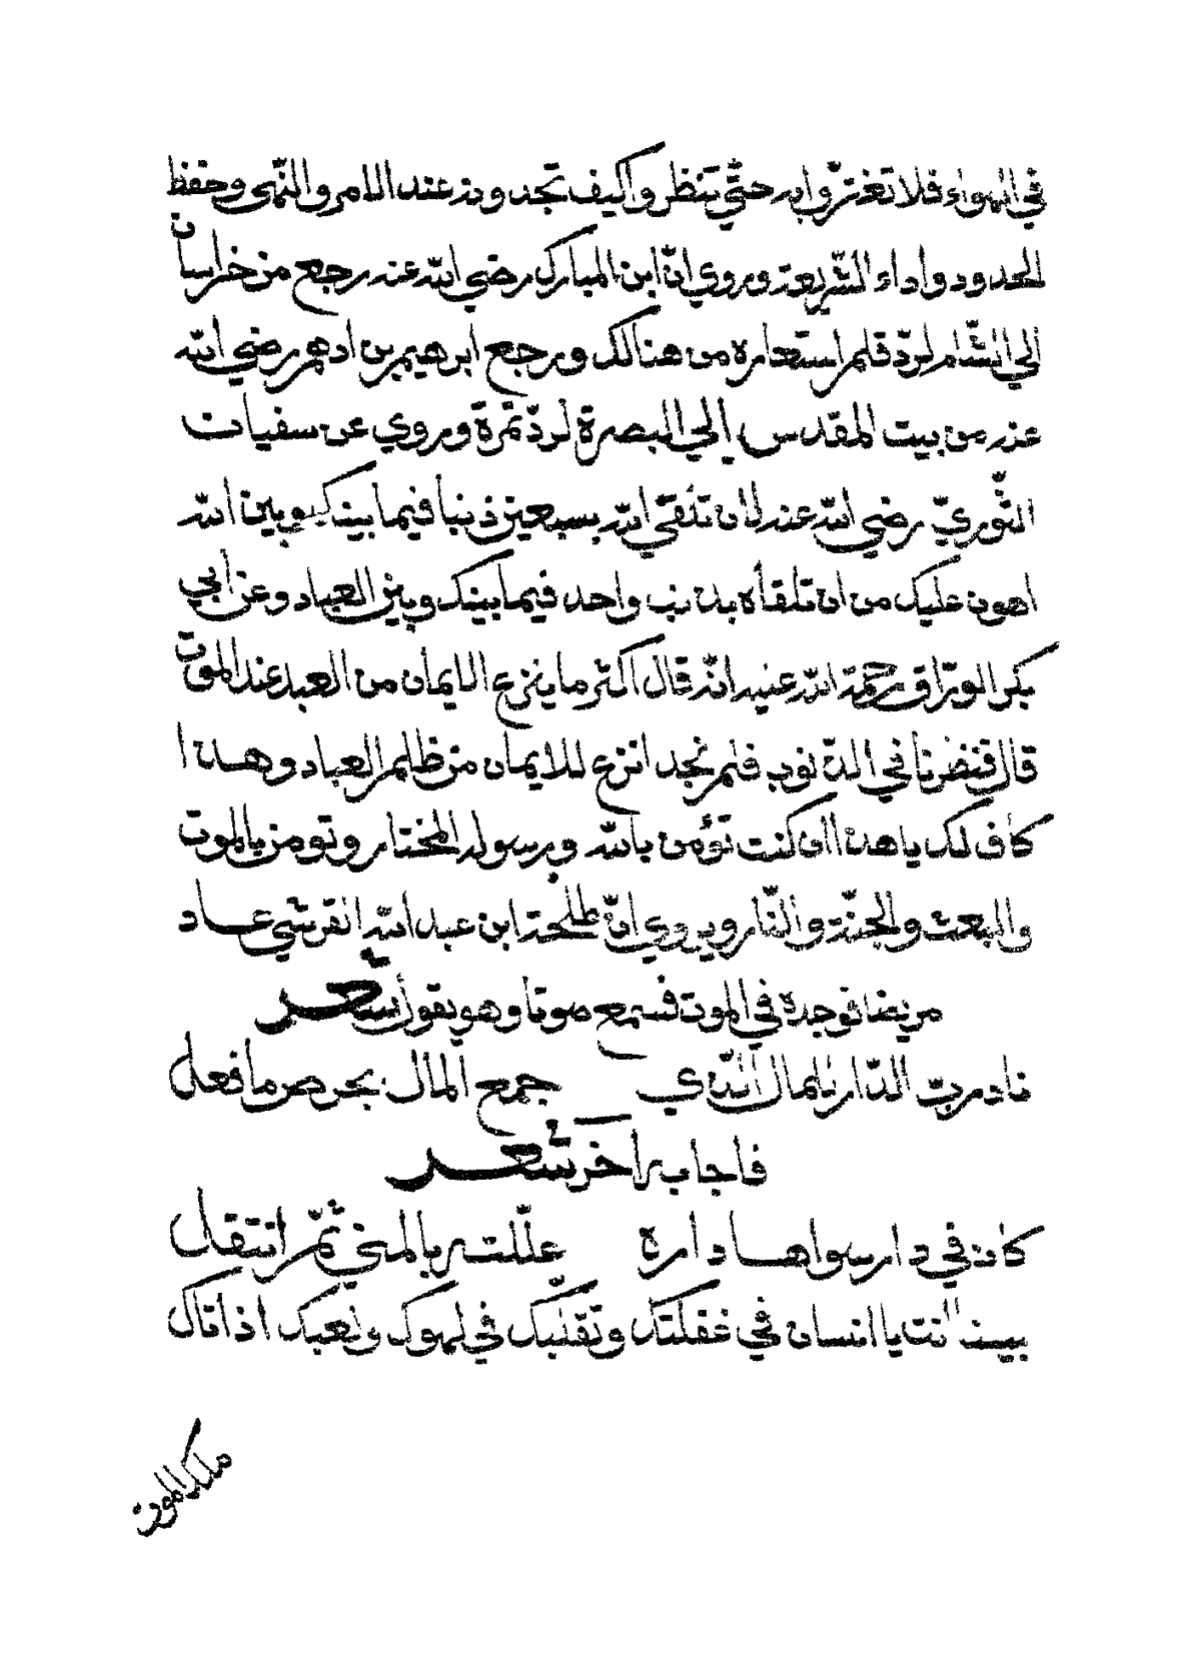 في الهواء فلا تغترّوا به حتّي تنظروا كيف تجدونه عند الامر والنّهي وحفظ
الحدود واداء الشّريعة وروي انّ ابن المبارك رضي اللّه عنه رجع من خراسان
الي الشّام لردّ قلم استعاره من هنالك ورجع ابرهيم بن ادهم رضي اللّه
عنه من بيت المقدس الي البصرة لردّ تمرة وروي عن سفيان
الثّوريّ رضي اللّه عنه لان تلقي اللّه بسبعين ذنبا فيما بينك وبين اللّه
اهون عليك من ان تلقاه بذنب واحد فيما بينك وبين العباد وعن ابي
بكر الورّاق رحمة اللّه عليه انّه قال اكثر ما ينزع الايمان من العبد عند الموت
قال فنضرنا في الذّنوب فلم نجد انزع للايمان من ظلم العباد وهذا
كاف لك يا هذا ان كنت تؤمن باللّه ورسوله المختار وتومن بالموت
والبعث والجنّة والنّار ويروي انّ طلحة ابن عبد اللّه القرشي عاد
مريضا فوجده في الموت فسمع صوتا وهو يقول شعر
ناد ربّ الدّار بالمال الّذي جمع المال بحرص ما فعل
فاجابه آخر شعر
كان في دار سواها داره علّلته بالمني ثمّ انتقل
بينا انت يا انسان في غفلتك وتقلّبك في لهوك ولعبك اذ اتاك
ملك الموت